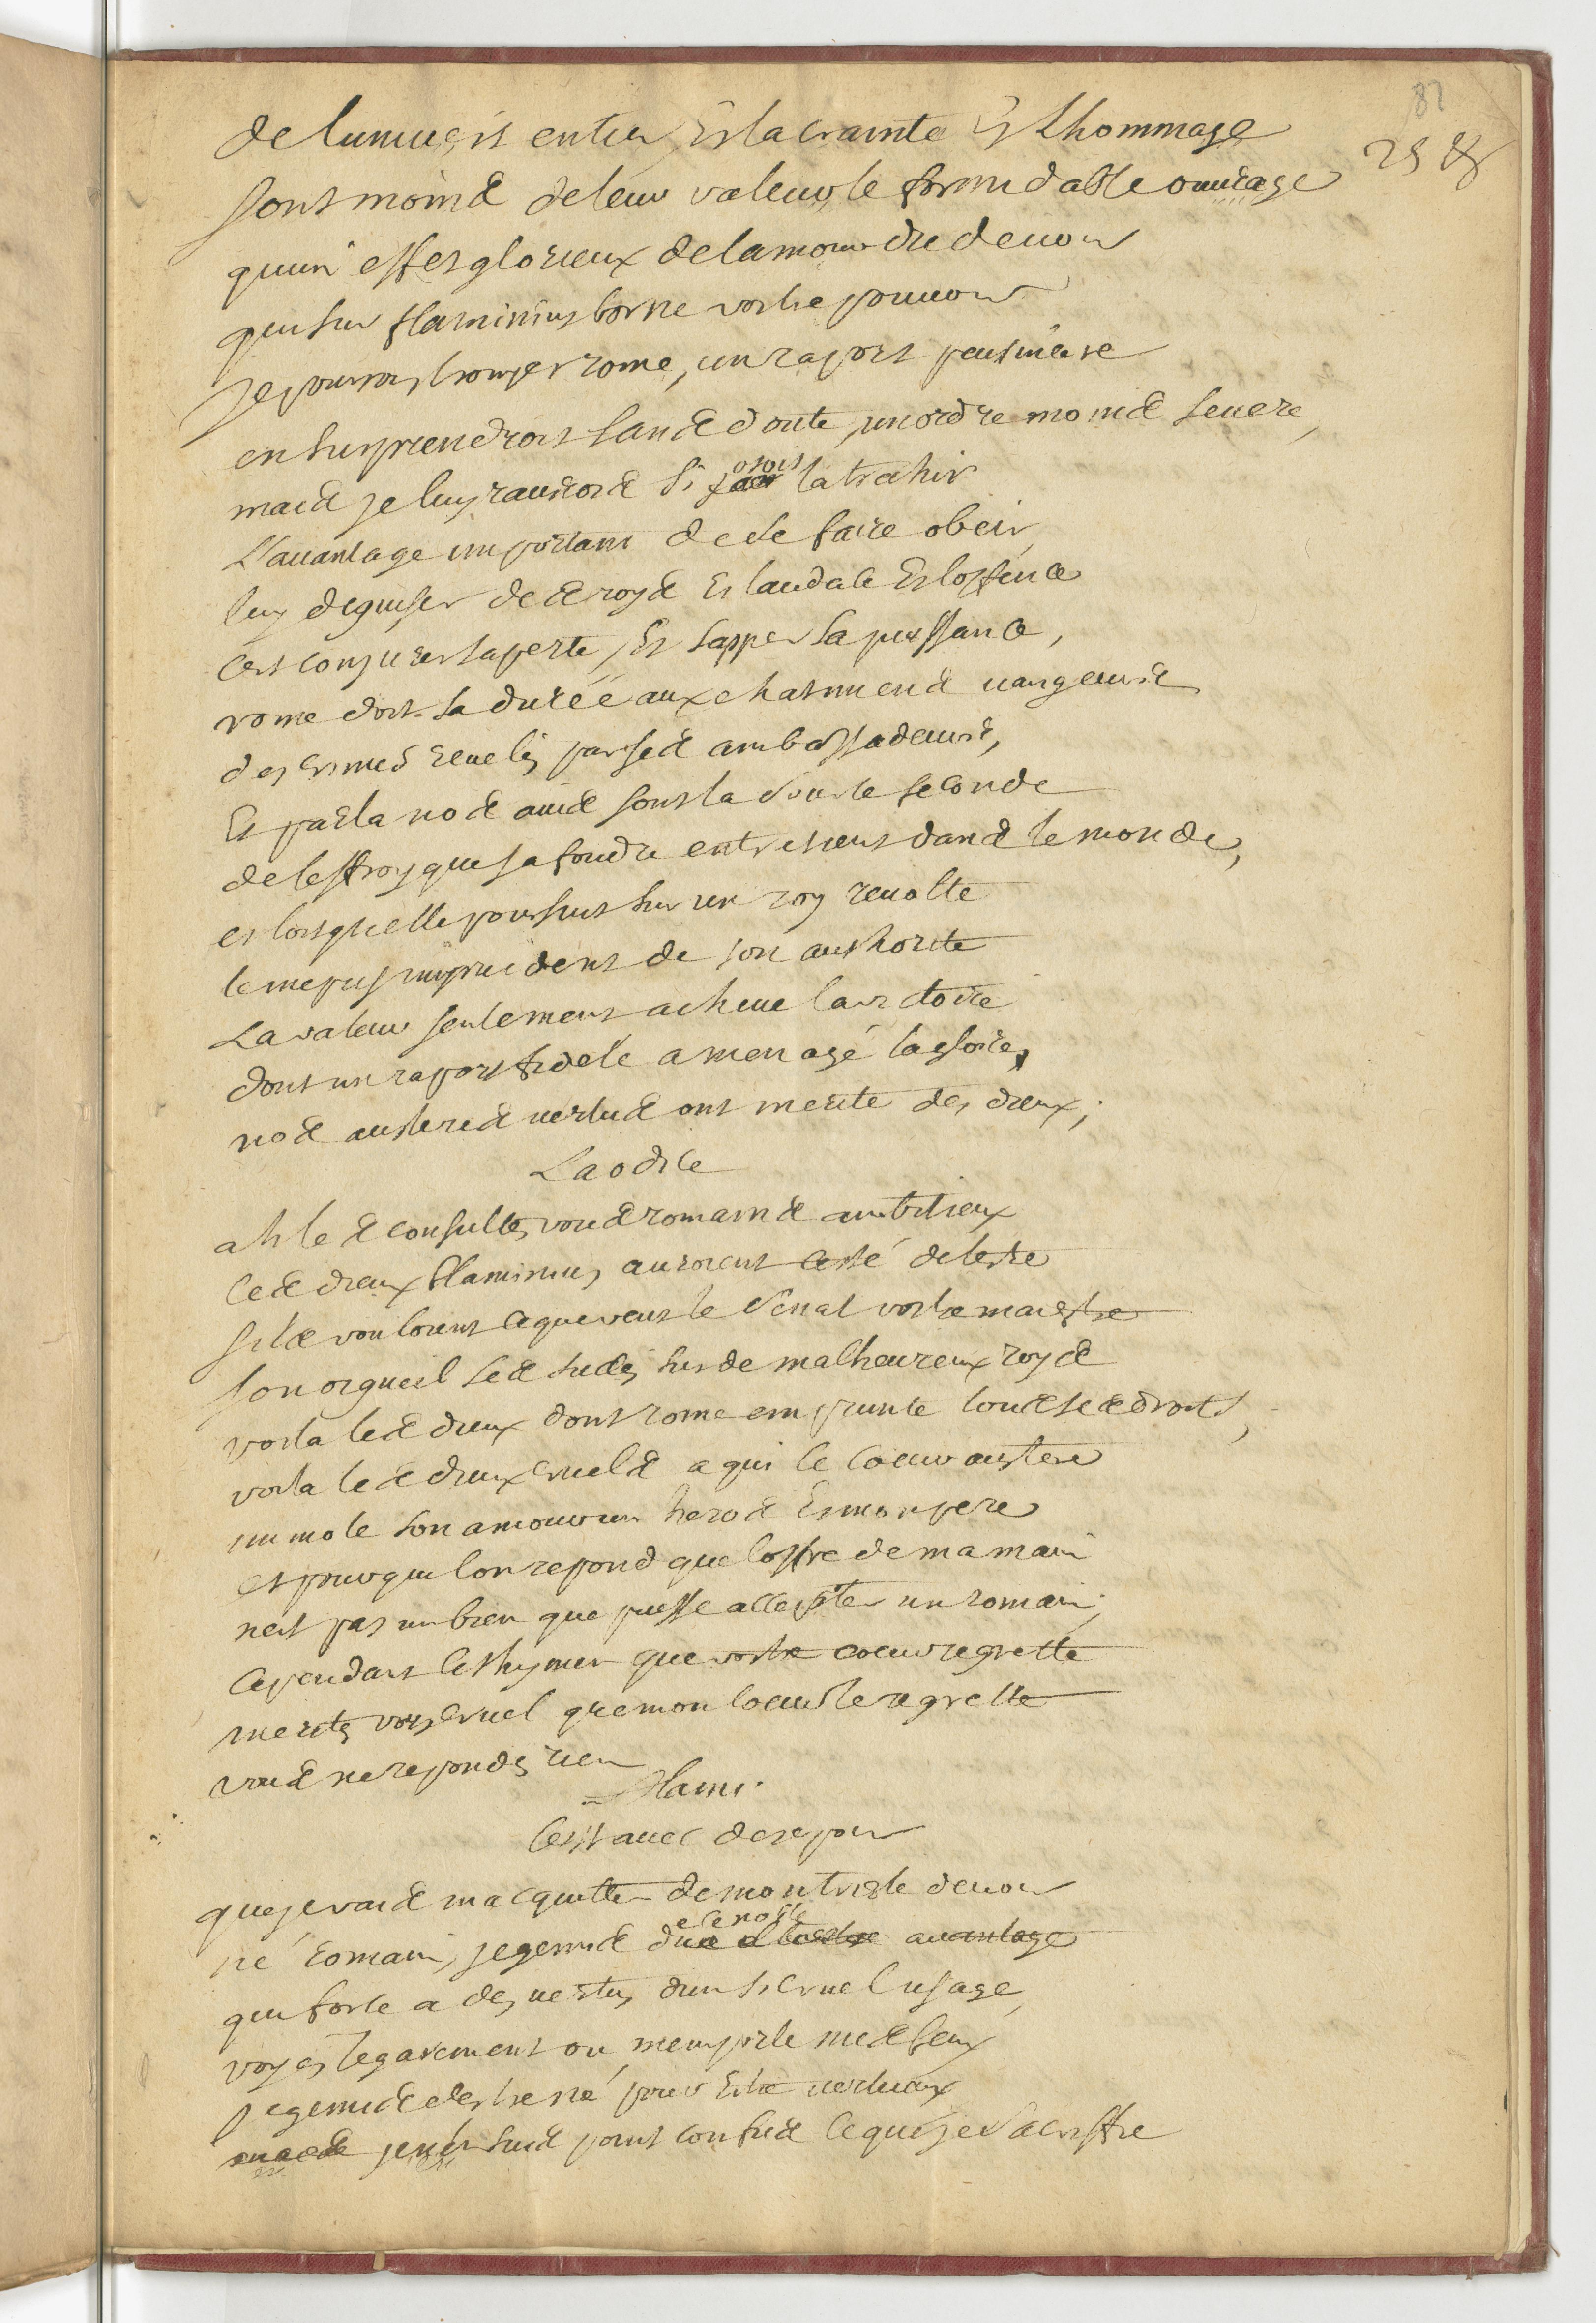 87
25 &
de lunivers entier Et la crainte Et Lhommage
sont moins de leur valeur le formidable ouvrage
quun effet glorieux de lamour du devoir
qui sur flaminius borne vostre pouvoir
je pourrois tromper rome, un raport peu sincere
en surprendroit sans doute, un ordre moins severe,
mais je luy ravirois si josois la trahir
L'avantage important de se faire obeir
luy deguiser des roys Et laudace Et loffence
cest conjurer sa perte, Et sapper sa puissance,
rome doit sa durée aux chatimens vangeurs
des crimes revelés par ses ambassadeurs,
Et par la nos avis sont la source seconde
de leffroy que sa foudre entretient dans le monde,
et lorsquelle poursuit sur un roy revolte
le mepris imprudent de son authorite
La valeur seulement acheve la victoire
dont un raport fidele a menagé la gloire,
nos austeres vertus ont merite des dieux;
Laodice
ah les consultes vous romains ambitieux
ces dieux flaminius auroient cessé de lestre
sils vouloient ce que veut le Senat vostre maistre
son orgueil ses succés sur de malheureux roys
voila les dieux dont rome emprunte tous ses droits,
voila les dieux cruels a qui le coeur austere
immole son amour un heros Et mon pere
et pour qui lon repond que loffre de ma main
nest pas un bien que puisse accepter un romain;
cependant cet hymen que vostre coeur regrette
merités vous cruel que mon coeur le regrette
vous ne repondés rien
Flami.
Cest avec desespoir
que je vais macquitter de mon triste devoir
né romain, je gemis de ce noble avantage
qui force a des vertus dun si cruel usage,
voyes legarement ou memporte mes feux
je gemis destre né pour Estre vertueux
je nen suis point confus ce que je sacriffie